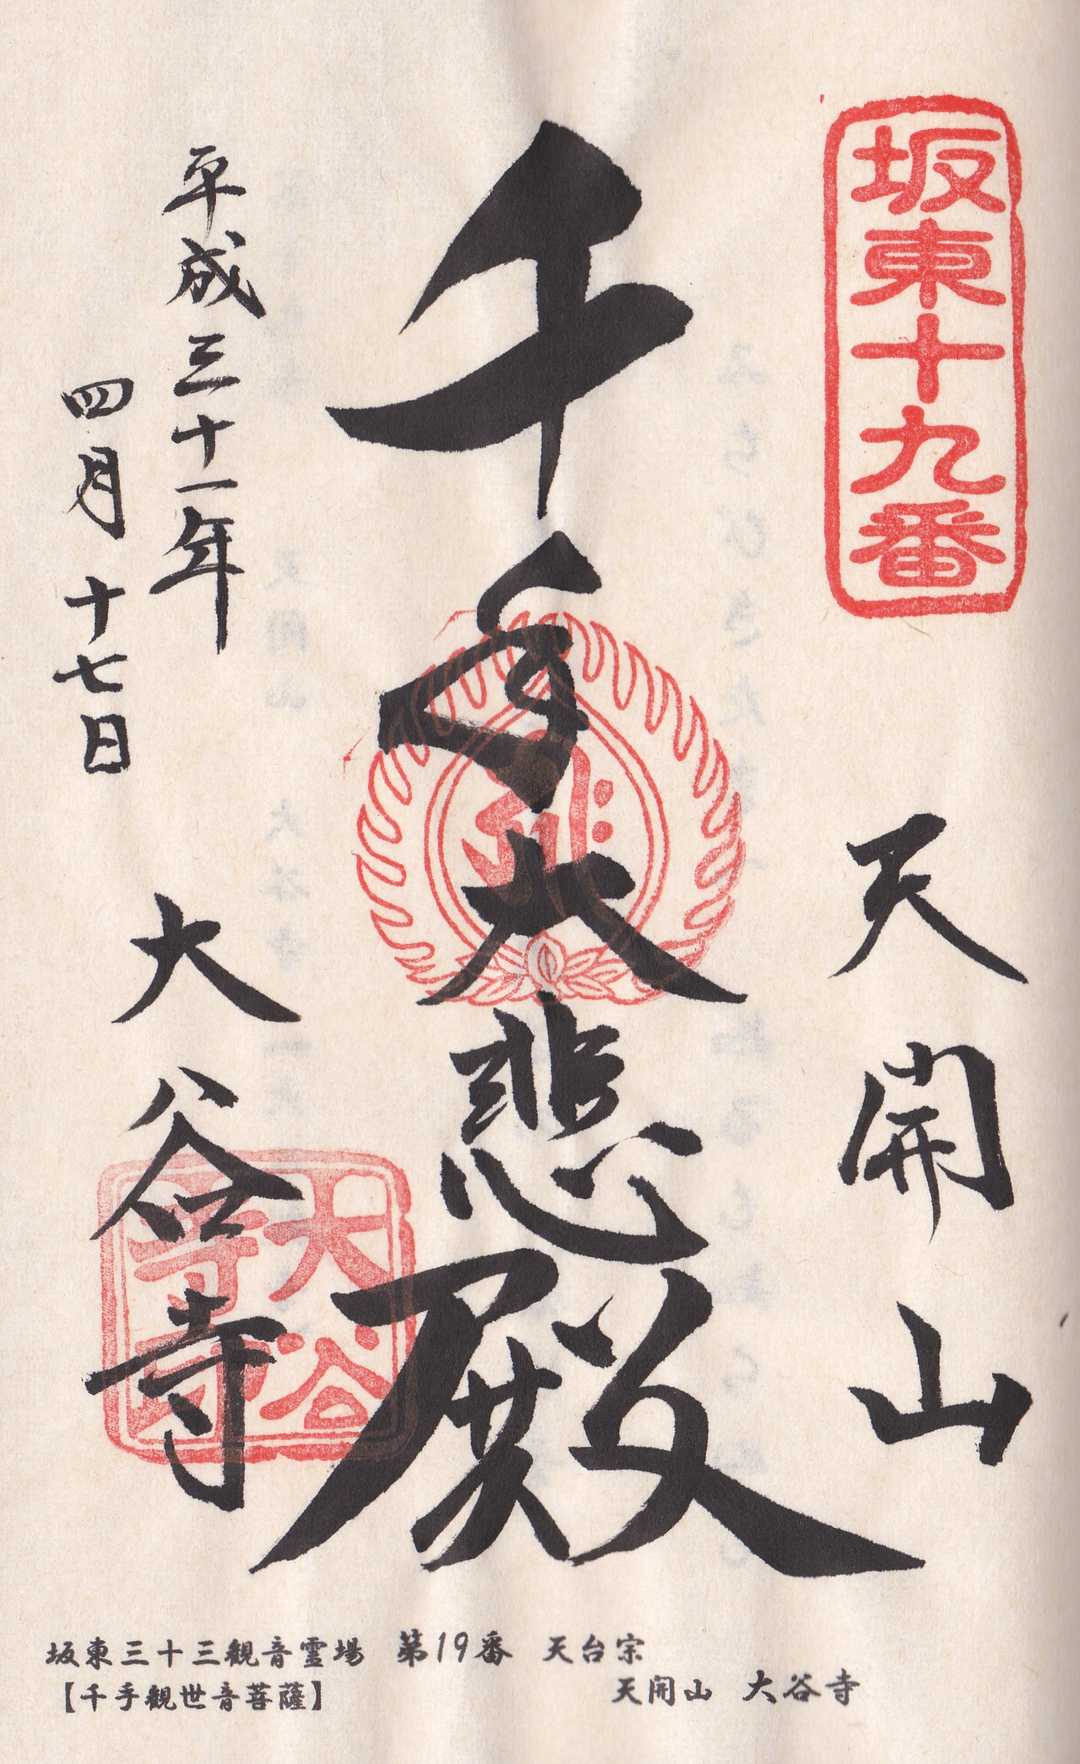 坂東十九番
天開山
千手大悲殿
平成三十一年
四月十七日
大谷寺
大谷
寺印
坂東三十三観音霊場 第19番 天台宗
【千手観世音菩薩】 天開山 大谷寺